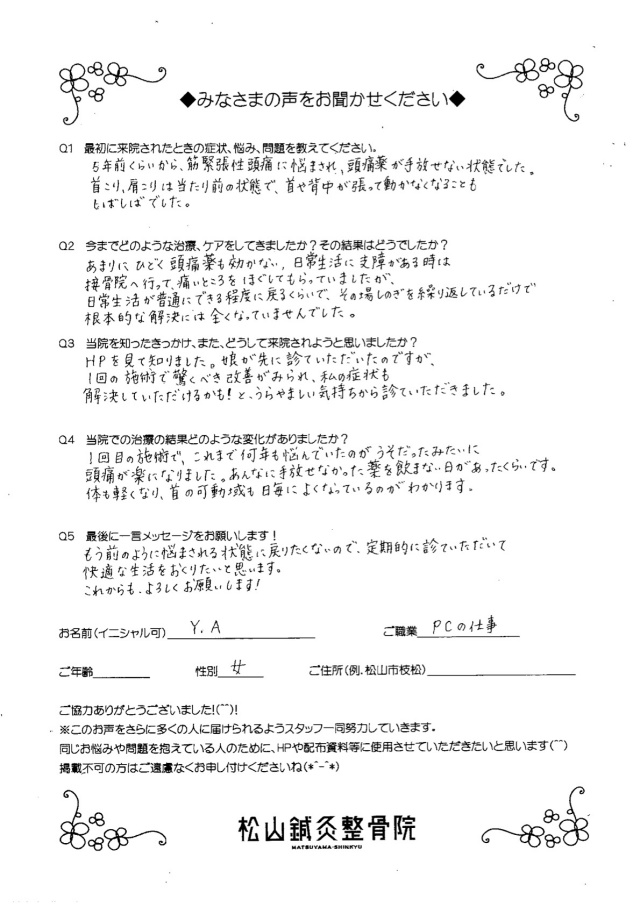 ◆みなさまの声をお聞かせください◆
Q1 最初に来院されたときの症状、悩み、問題を教えてください。
5年前くらいから、筋緊張性頭痛に悩まされ、頭痛薬が手放せない状態でした。
首こり、肩こりは当たり前の状態で、首や背中が張って動かなくなることも
しばしばでした。
Q2 今までどのような治療、ケアをしてきましたか？その結果はどうでしたか？
あまりにひどく頭痛薬も効かない、日常生活に支障がある時は
接骨院へ行って、痛いところをほぐしてもらっていましたが、
日常生活が普通にできる程度に戻るくらいで、その場しのぎを繰り返しているだけで
根本的な解決には全くなっていませんでした。
Q3 当院を知ったきっかけ、また、どうして来院されようと思いましたか？
HPを見て知りました。娘が先に診ていただいたのですが、
1回の施術で驚くべき改善がみられ、私の症状も
解決していただけるかも!と、うらやましい気持ちから診ていただきました。
Q4 当院での治療の結果どのような変化がありましたか？
1回目の施術で、これまで何年も悩んでいたのがうそだったみたいに
頭痛が楽になりました。あんなに手放せなかった薬を飲まない日があったくらいです。
体も軽くなり、首の可動域も日毎によくなっているのがわかります。
Q5 最後に一言メッセージをお願いします！
もう前のように悩まされる状態に戻りたくないので、定期的に診ていただいて
快適な生活をおくりたいと思います。
これからも、よろしくお願いします!
お名前(イニシャル可) Y.A ご職業 PCの仕事
ご年齢 性別 女 ご住所(例.松山市枝松)
ご協力ありがとうございました!(^^)!
※このお声をさらに多くの人に届けられるようスタッフ一同努力していきます。
同じお悩みや問題を抱えている人のために、HPや配布資料等に使用させていただきたいと思います(^^)
掲載不可の方はご遠慮なくお申し付けくださいね(*^-^*)
松山鍼灸整骨院
MATSUYAMA-SHINKYU